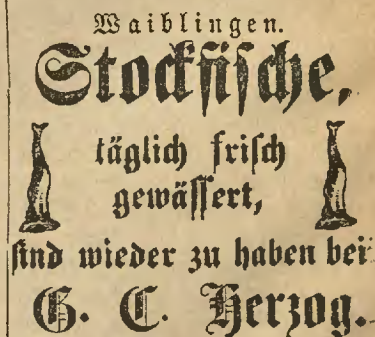 Waiblingen.
Stockfische,
täglich frisch
gewässert,
sind wieder zu haben bei
G. C. Herzog.